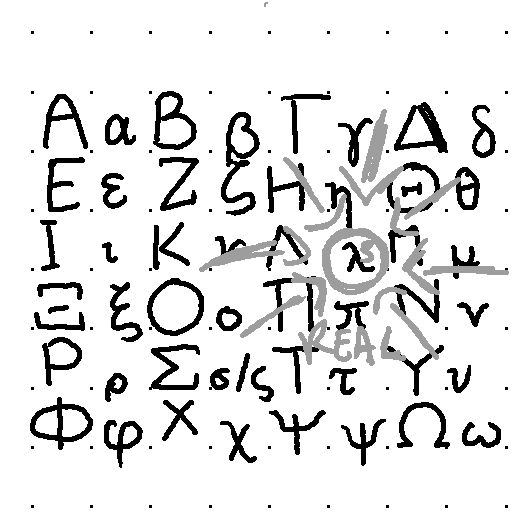 Α α Β β Γ γ Δ δ
Ε ε Ζ ζ Η η Θ θ
Ι ι Κ κ Λ λ Μ μ
Ξ ξ Ο ο Π π Ν ν
REAL
Ρ ρ Σ σ/ς Τ τ Υ υ
Φ φ Χ χ Ψ ψ Ω ω